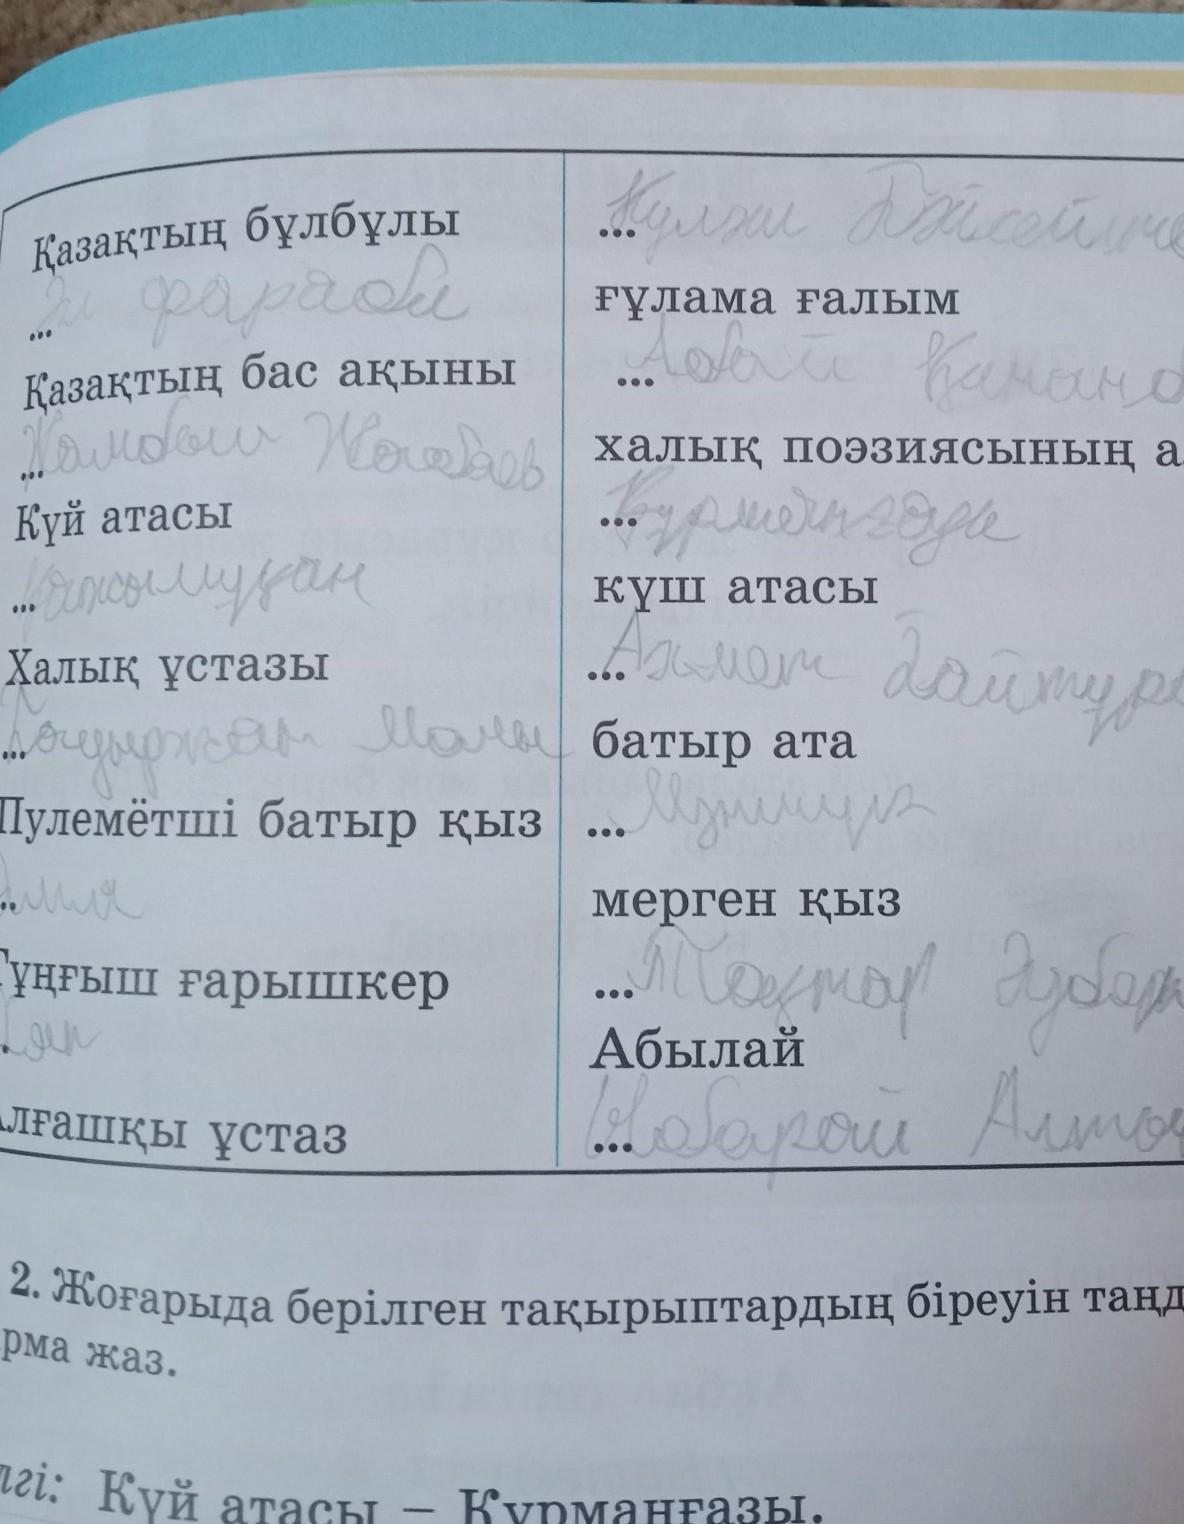 Қазақтың бұлбұлы
... Күләш Байсейіне
... Әл фараби
ғұлама ғалым
Қазақтың бас ақыны
... Абай Құнанб
... Жамбыл Жабаев
халық поэзиясының а
Күй атасы
... Құрманғазы
... Қажымұқан
күш атасы
Халық ұстазы
... Ахмет Байтұрс
... Бауыржан Момы
батыр ата
Пулемётші батыр қыз
... Мәншүк
.. Әлия
мерген қыз
Тұңғыш ғарышкер
... Тоқтар Әубәкі
.
Абылай
лғашқы ұстаз
... Ыбырай Алты
2. Жоғарыда берілген тақырыптардың біреуін таңд
рма жаз.
лгі: Күй атасы – Құрманғазы.